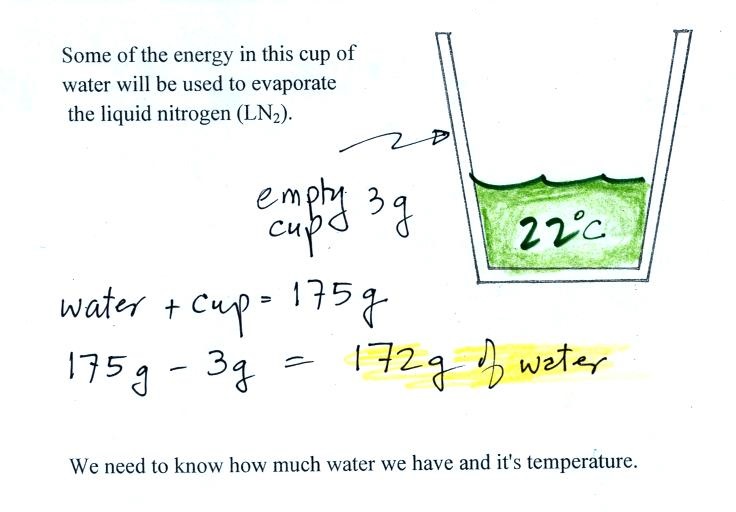 Some of the energy in this cup of
water will be used to evaporate
the liquid nitrogen (LN₂).
empty 3g
cup
22°C
water + cup = 175g
175g - 3g = 172g of water
We need to know how much water we have and it's temperature.